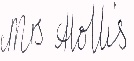 Mrs Hollis